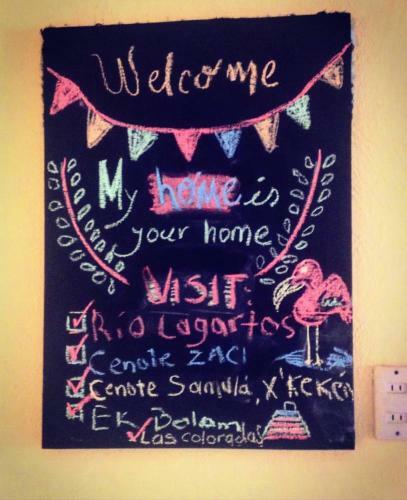 Welcome
My home is
your home
VISIT:
Río Lagartos
Cenote ZACI
Cenote Samulá, X'KEKÉN
EK Balam
Las coloradas